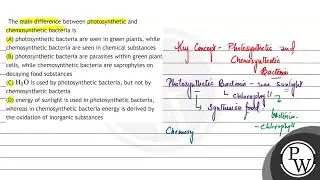 The main difference between photosynthetic and
chemosynthetic bacteria is
(A) photosynthetic bacteria are seen in green plants, while
chemosynthetic bacteria are seen in chemical substances
(B) photosynthetic bacteria are parasites within green plant
cells, while chemosynthetic bacteria are saprophytes on
decaying food substances
(C) H₂O is used by photosynthetic bacteria, but not by
chemosynthetic bacteria
(D) energy of sunlight is used in photosynthetic bacteria,
whereas in chemosynthetic bacteria energy is derived by
the oxidation of inorganic substances
Key Concept - Photosynthetic and
Chemosynthetic
Bacteria
Photosynthetic Bacteria - use sunlight
chlorophyll
Synthesise food
bacterio-
chlorophyll
Chemosy
PW